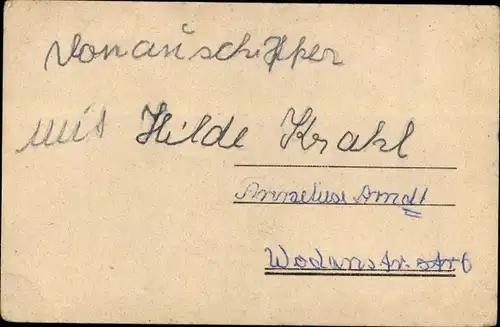 Donauschiffer
mit Hilde Krahl
Anneliese Arndt
Wodanstr. str 6